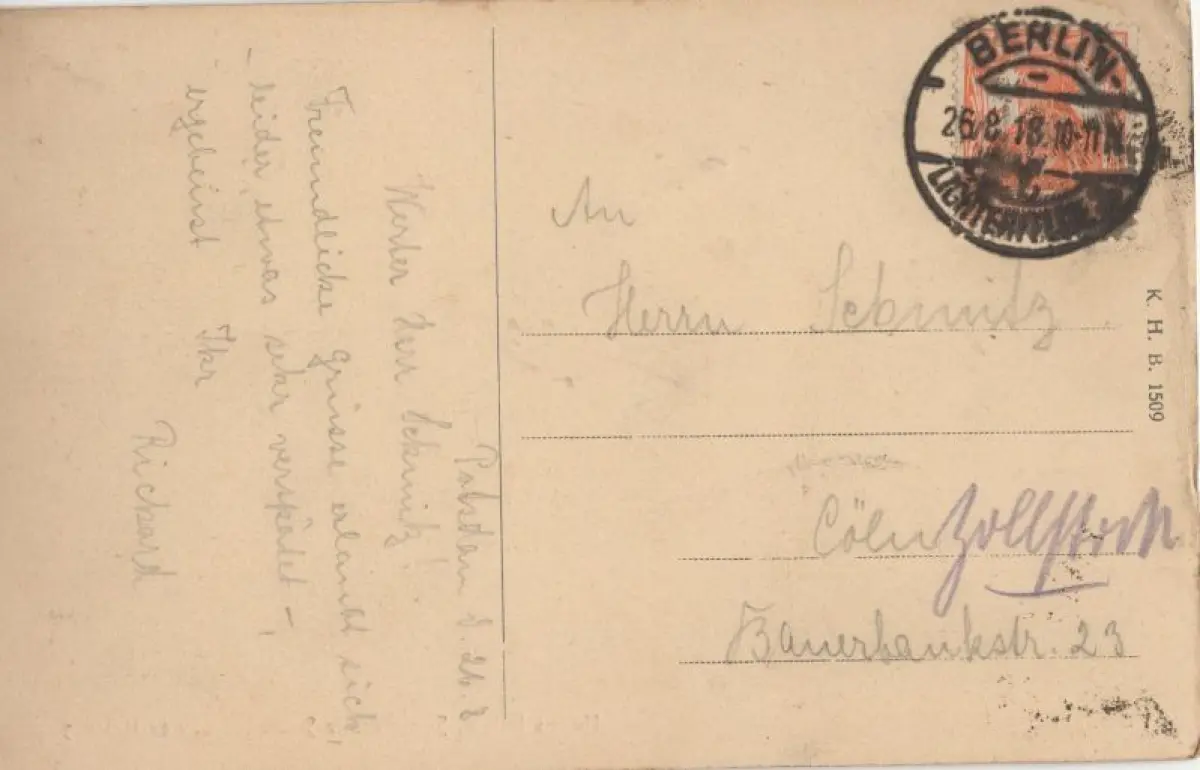 Potsdam d. 26. 8
Werter Herr Schmitz!
Freundliche Grüsse erlaubt sich,
- leider, etwas sehr verspätet -,
ergebenst Ihr
Richard
BERLIN-
26.8.18.10-11N
LICHTERFELDE
An
Herrn Schmitz
Cöln Zollstock
Bauerbankstr. 23
K. H. B. 1509